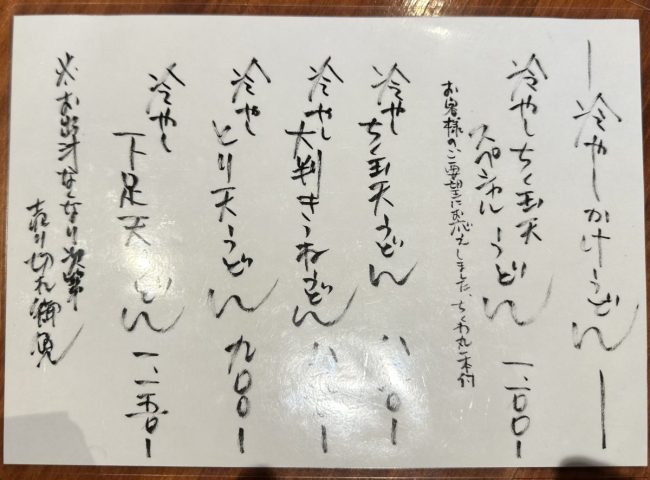 冷やしかけうどん
冷やしちく玉天
スペシャルうどん 一、一〇〇ー
お客様のご要望にお応えしました、ちくわ丸一本付
冷やし
ちく玉天うどん
冷やし
大判きつねうどん
冷やし
とり天うどん 九〇〇ー
冷やし
下足天うどん 一、一五〇ー
※お出汁なくなり次第
売り切れ御免